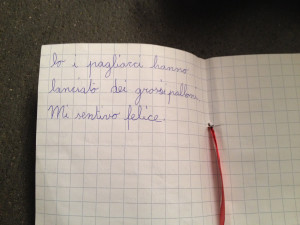 lo i pagliacci hanno
lanciato dei grossi palloni.
Mi sentivo felice.